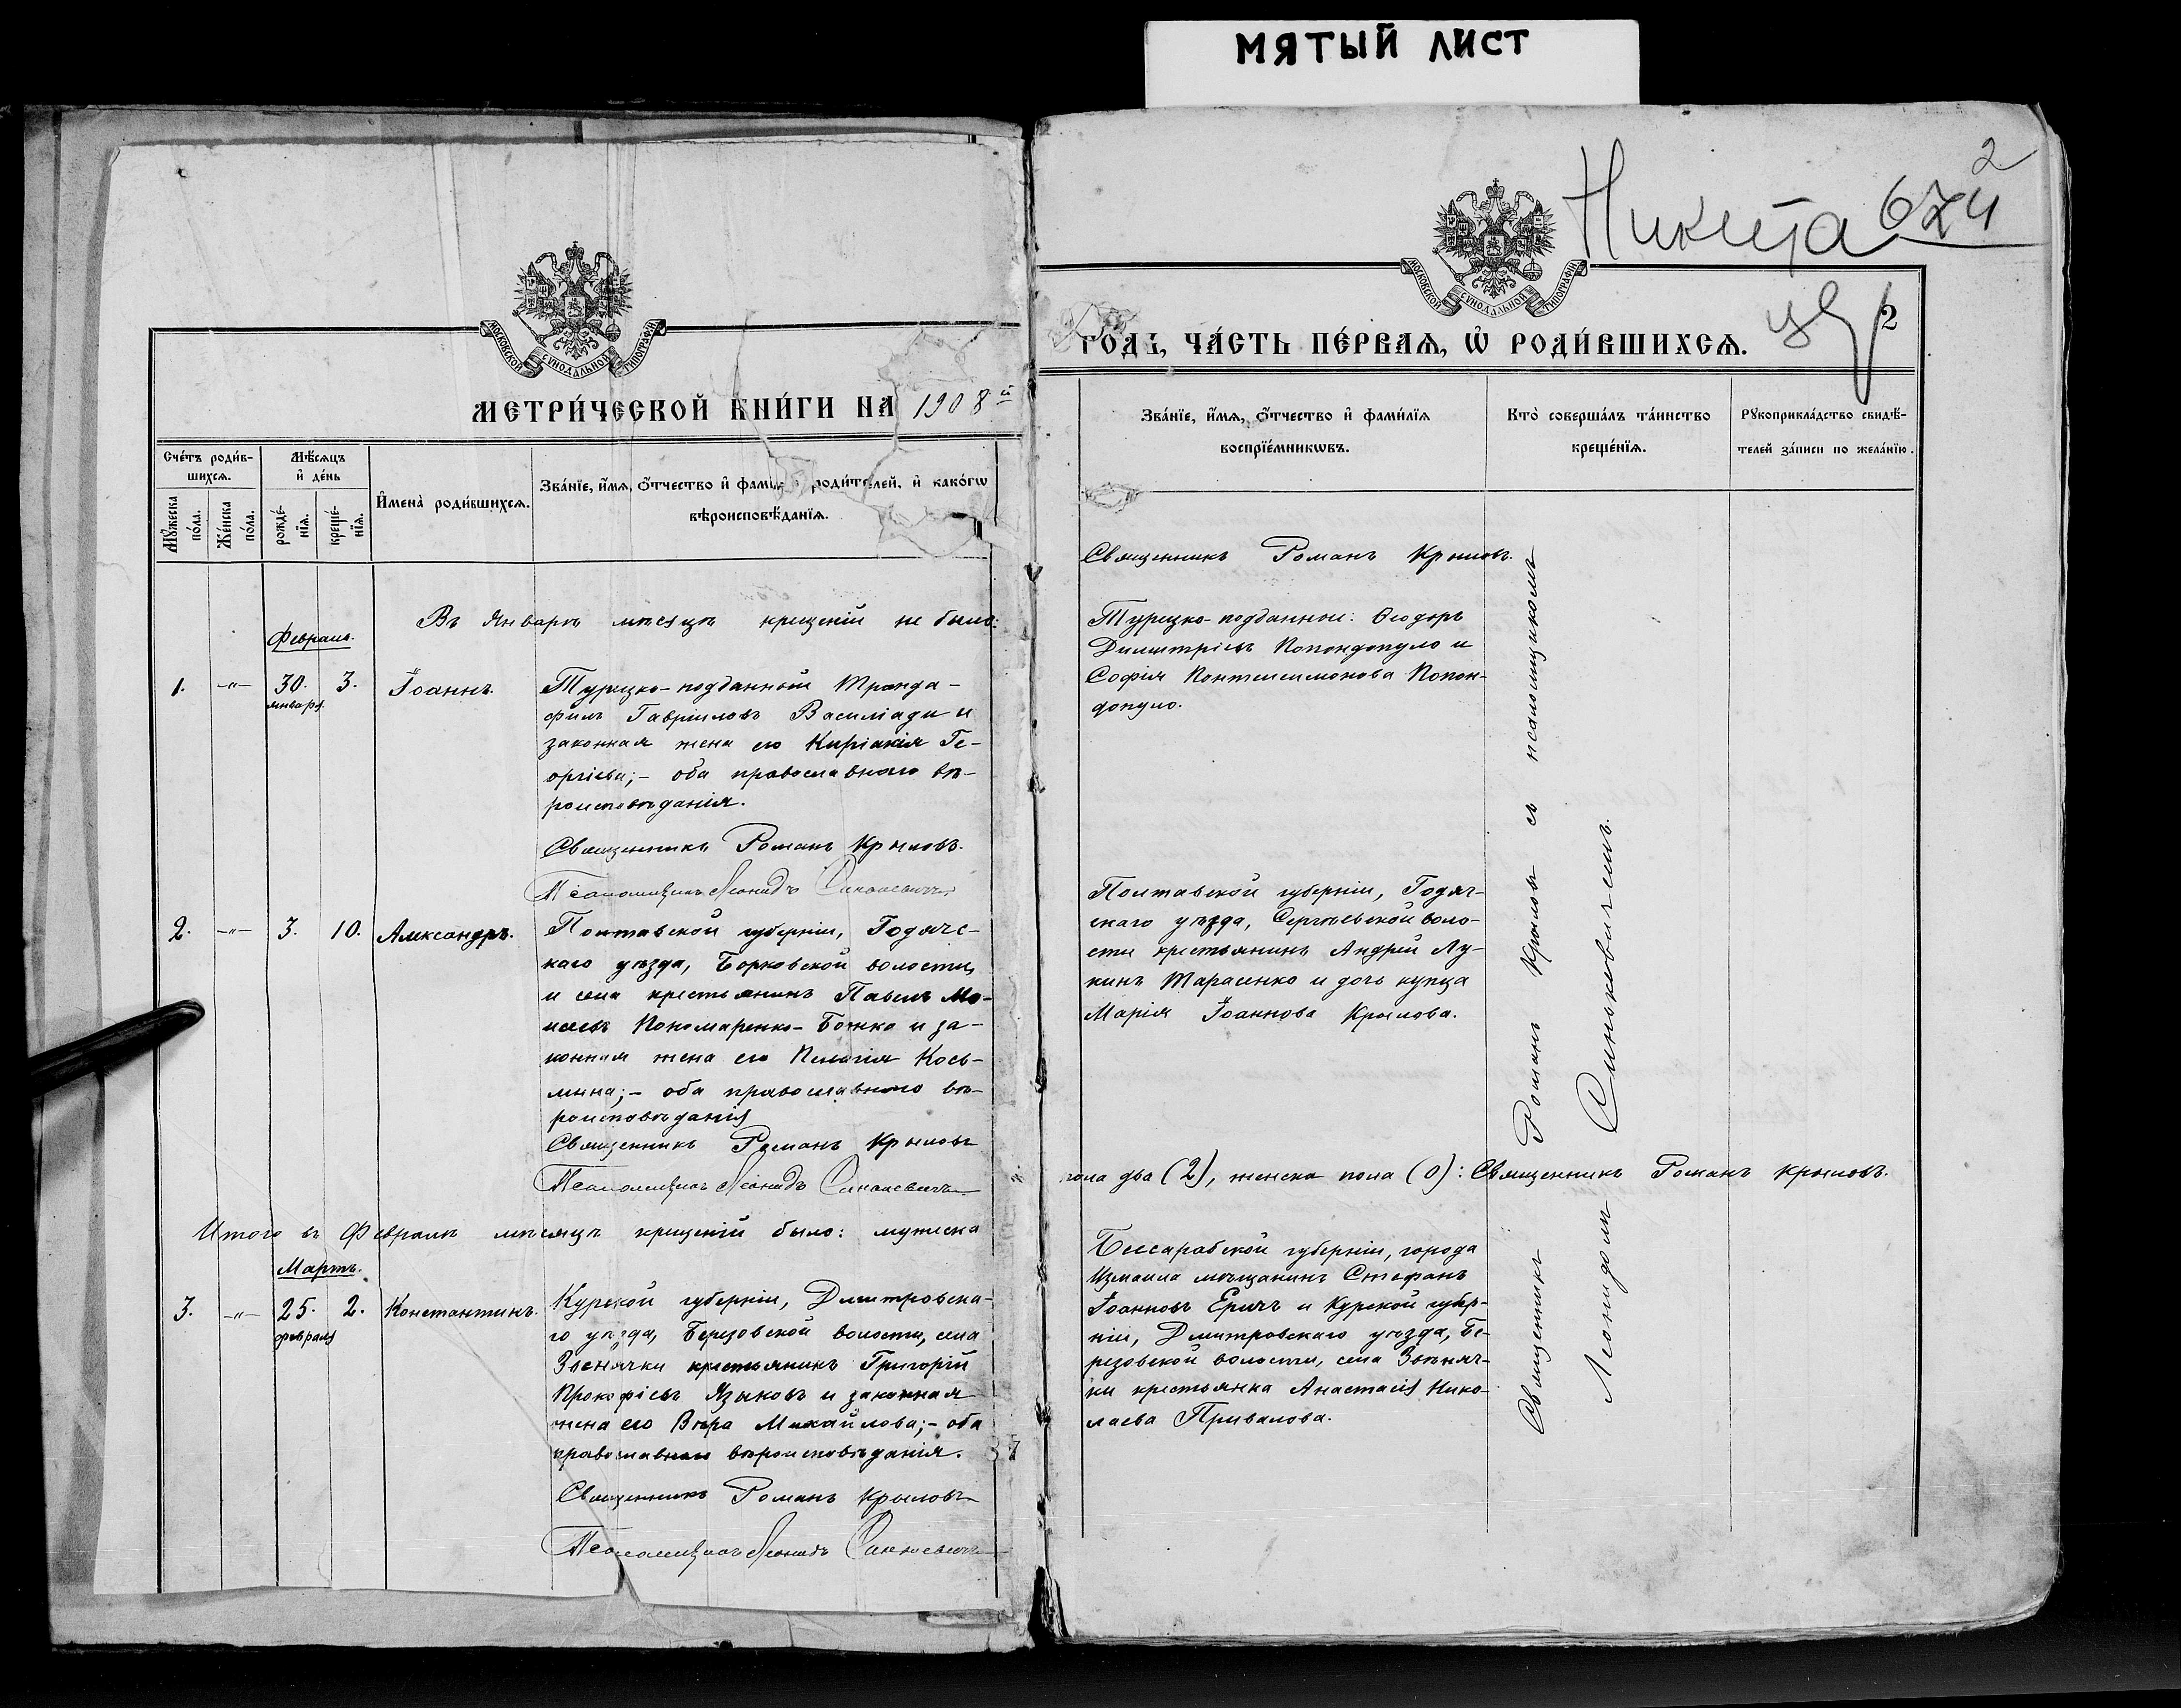 МЯТЫЙ ЛИСТ
2
Никита 674
МОСКОВСКОЙ СѴНОДАЛЬНОЙ ТИПОГРАФІИ
МЕТРИ́ЧЕСКОЙ КНИ́ГИ НА 1908й
Сче́тъ роди́в-
шихсѧ.
Мѣ́сѧцъ
и҆ де́нь
Мꙋ́жеска
по́ла.
Же́нска
по́ла.
рожде́-
нїѧ.
креще́-
нїѧ.
И҆мена̀ роди́вшихсѧ.
Зва́нїе, и҆́мѧ, ѻ҆́тчество и҆ роди́телей, и҆ како́гѡ
вѣроисповѣ́данїѧ.
Въ Январѣ мѣсяцѣ крещеній не было:
Февраль.
1.
-„-
30.
января
3.
Іоаннъ.
Турецко-подданный Транда-
филъ Гавріиловъ Василіади и
законная жена его Киріакія Ге-
оргіева;- оба православнаго вѣ-
роисповѣданія.
Священникъ Романъ Крыловъ.
Псаломщикъ Леонидъ Синькевичъ
2.
-„-
3.
10.
Александръ.
Полтавской губерніи, Годячс-
каго уѣзда, Борковской волости,
и села крестьянинъ Павелъ Мо-
исеевъ Пономаренко-Божко и за-
конная жена его Пелагія Кось-
мина;- оба православнаго вѣ-
роисповѣданія
Священникъ Романъ Крыловъ
Псаломщикъ Леонидъ Синькевичъ
Итого въ Февралѣ мѣсяцѣ крещеній было: мужеска
Мартъ.
3.
-„-
25.
февраля
2.
Константинъ.
Курской губерніи, Дмитровска-
го уѣзда, Березовской волости, села
Звенячки крестьянинъ Григорій
Прокофіевъ Языковъ и законная
жена его Вѣра Михайлова;- оба
православнаго вѣроисповѣданія.
37
Священникъ Романъ Крыловъ
Псаломщикъ Леонидъ Синькевичъ
МОСКОВСКОЙ СѴНОДАЛЬНОЙ ТИПОГРАФІИ
ГОДЪ, ЧА́СТЬ ПЕ́РВАѦ, Ѡ҆ РОДИ́ВШИХСѦ.
2
Зва́нїе, и҆́мѧ, ѻ҆́тчество и҆ фами́лїѧ
воспрїе́мникѡвъ.
Кто̀ соверша́лъ та́инство
креще́нїѧ.
Рꙋкоприкла́дство свидѣ́-
телей за́писи по жела́нїю.
Священникъ Романъ Крыловъ.
Турецко-подданные: Ѳеодоръ
Димитріевъ Попондопуло и
Софія Пантелеимонова Попон-
допуло.
Полтавской губерніи, Годяч-
скаго уѣзда, Сергѣевской воло-
сти крестьянинъ Андрей Лу-
кинъ Тарасенко и дочь купца
Марія Іоаннова Крылова.
пола два (2), женска пола (0): Священникъ Романъ Крыловъ.
Бессарабской губерніи, города
Измаила мѣщанинъ Стефанъ
Іоанновъ Еричъ и Курской губер-
ніи, Дмитровскаго уѣзда, Бе-
резовской волости, села Звѣняч-
ки крестьянка Анастасія Нико-
лаева Привалова.
Священникъ Романъ Крыловъ съ псаломщикомъ
Леонидомъ Синькевичемъ.